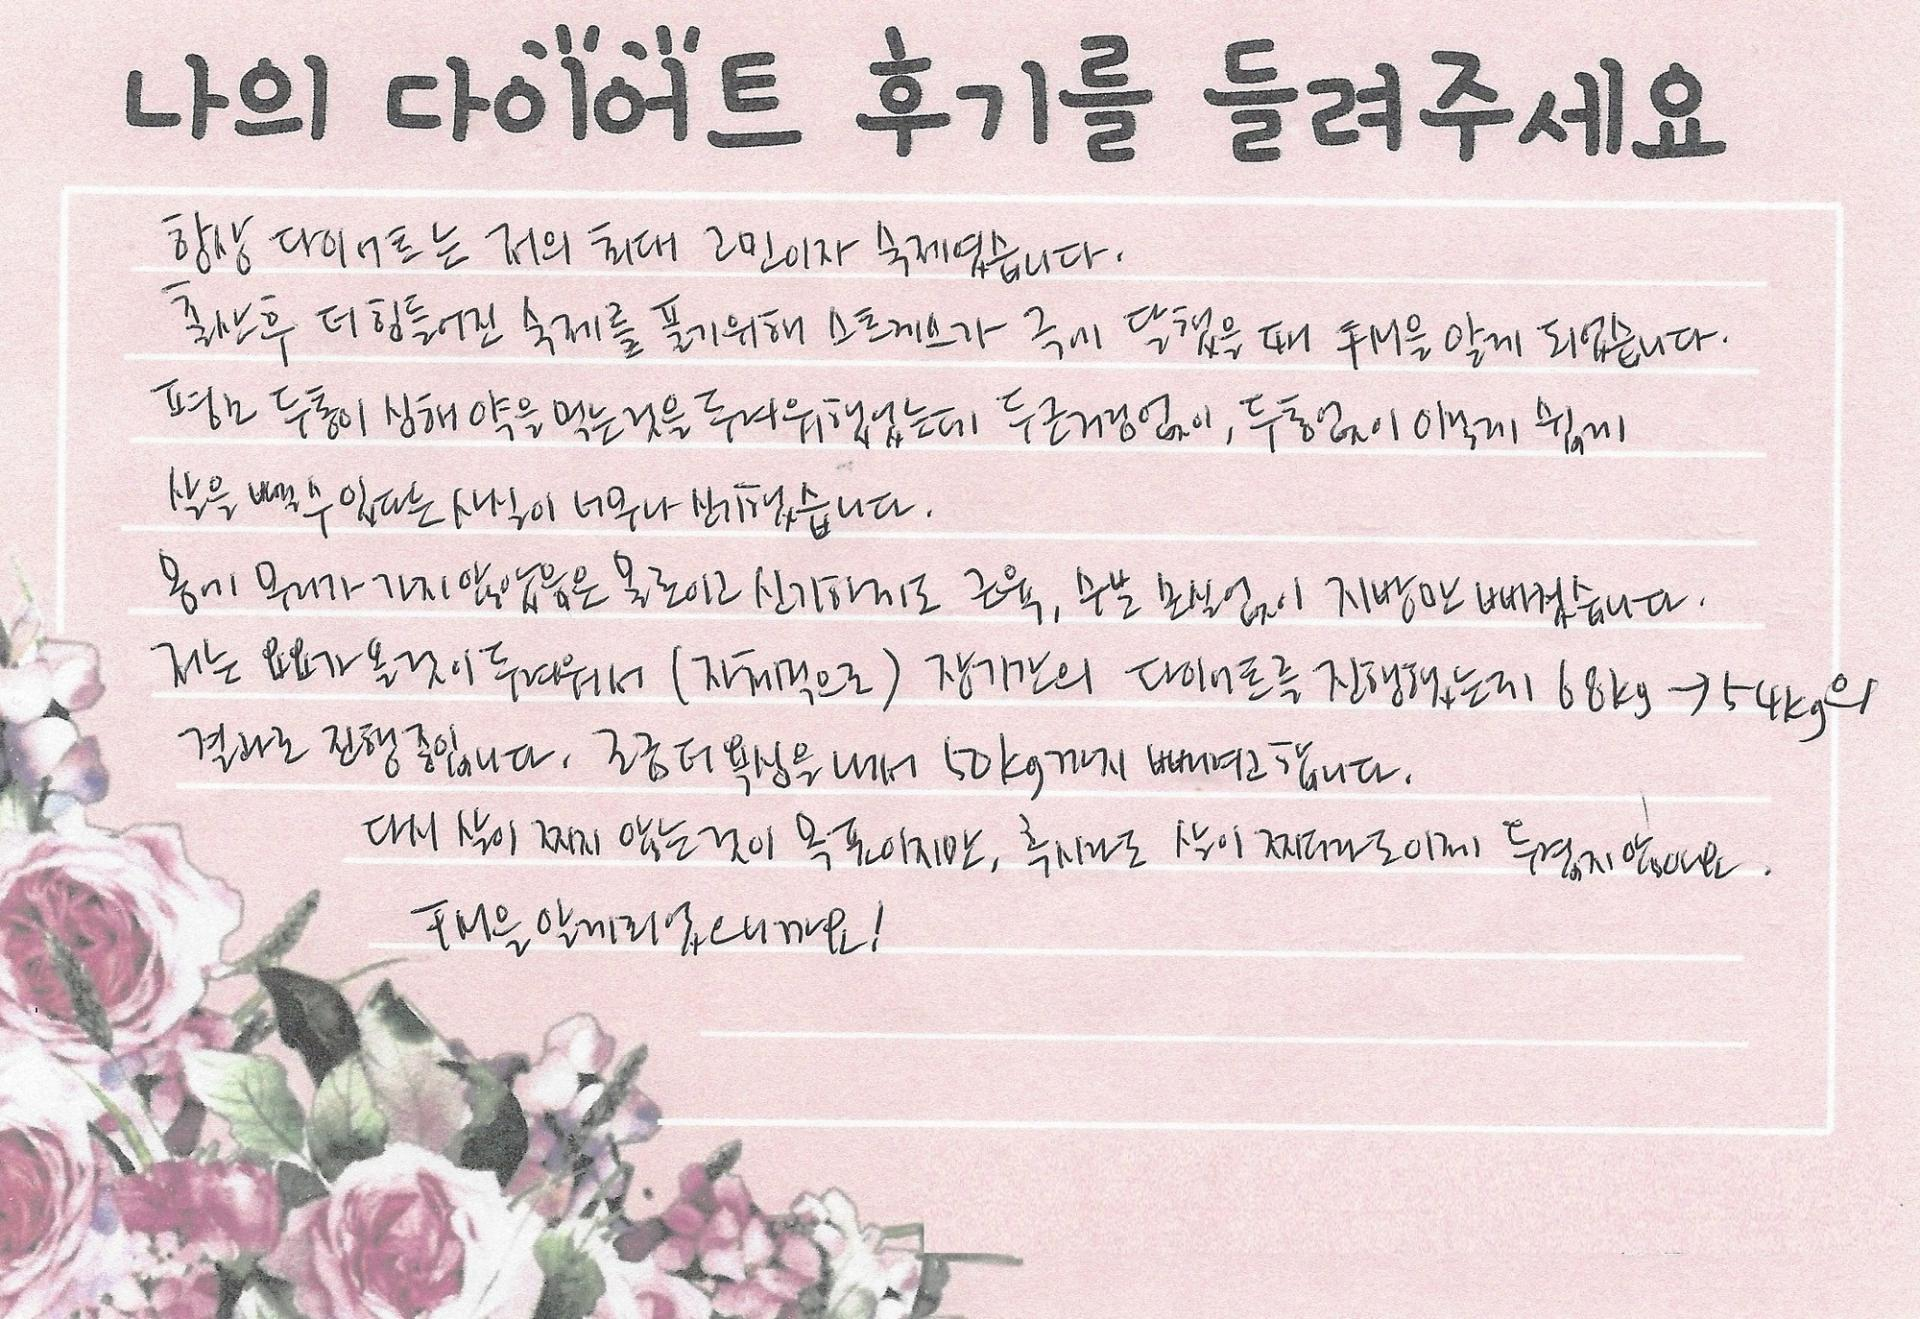 나의 다이어트 후기를 들려주세요
항상 다이어트는 저의 최대 고민이자 숙제였습니다.
출산후 더 힘들어진 숙제를 풀기위해 스트레스가 극에 달했을 때 쥬비스을 알게 되었습니다.
평소 두통이 심해 약을 먹는것을 두려워했었는데 두근거림없이, 두통없이 이렇게 쉽게
살을 뺄수있다는 사실이 너무나 신기했습니다.
몸에 무리가 가지않았음은 물론이고 신기하게도 근육, 수분 손실없이 지방만 빠졌습니다.
저는 요요가 올것이 두려워서 (자체적으로) 장기간의 다이어트를 진행했는데 68kg → 54kg의
결과로 진행중입니다. 조금 더 욕심을 내서 50kg까지 빼려고 합니다.
다시 살이 찌지 않는것이 목표이지만, 혹시라도 살이 찌더라도 이제 두렵지 않아요.
알게되었으니까요!